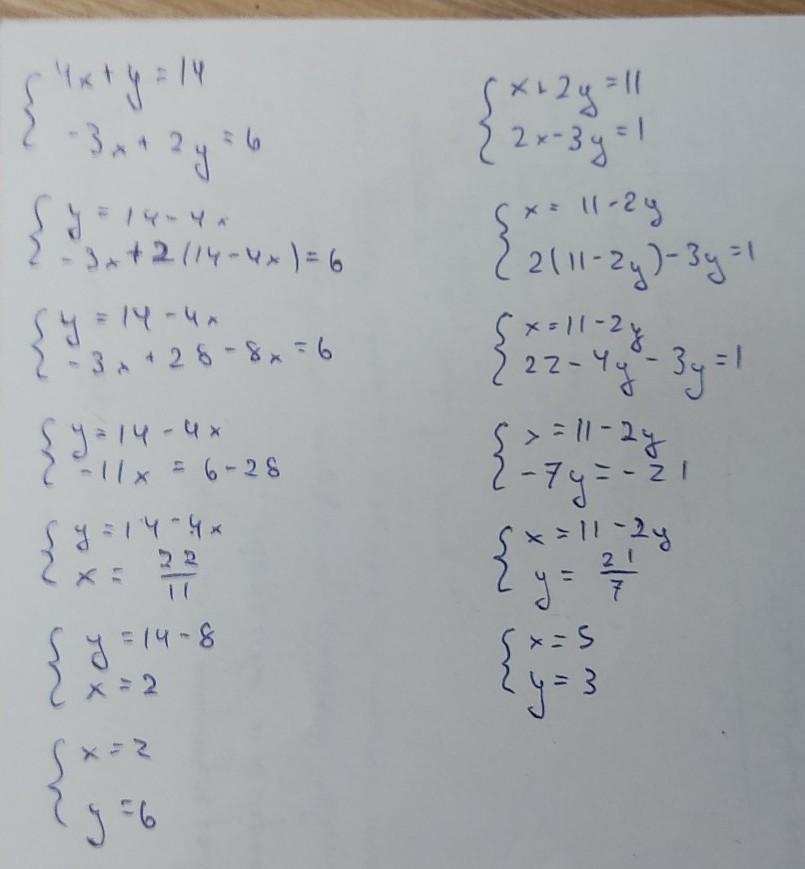 4x+y=14
-3x+2y=6
y=14-4x
-3x+2(14-4x)=6
y=14-4x
-3x+28-8x=6
y=14-4x
-11x=6-28
y=14-4x
x=22/11
y=14-8
x=2
x=2
y=6
x+2y=11
2x-3y=1
x=11-2y
2(11-2y)-3y=1
x=11-2y
22-4y-3y=1
x=11-2y
-7y=-21
x=11-2y
y=21/7
x=5
y=3